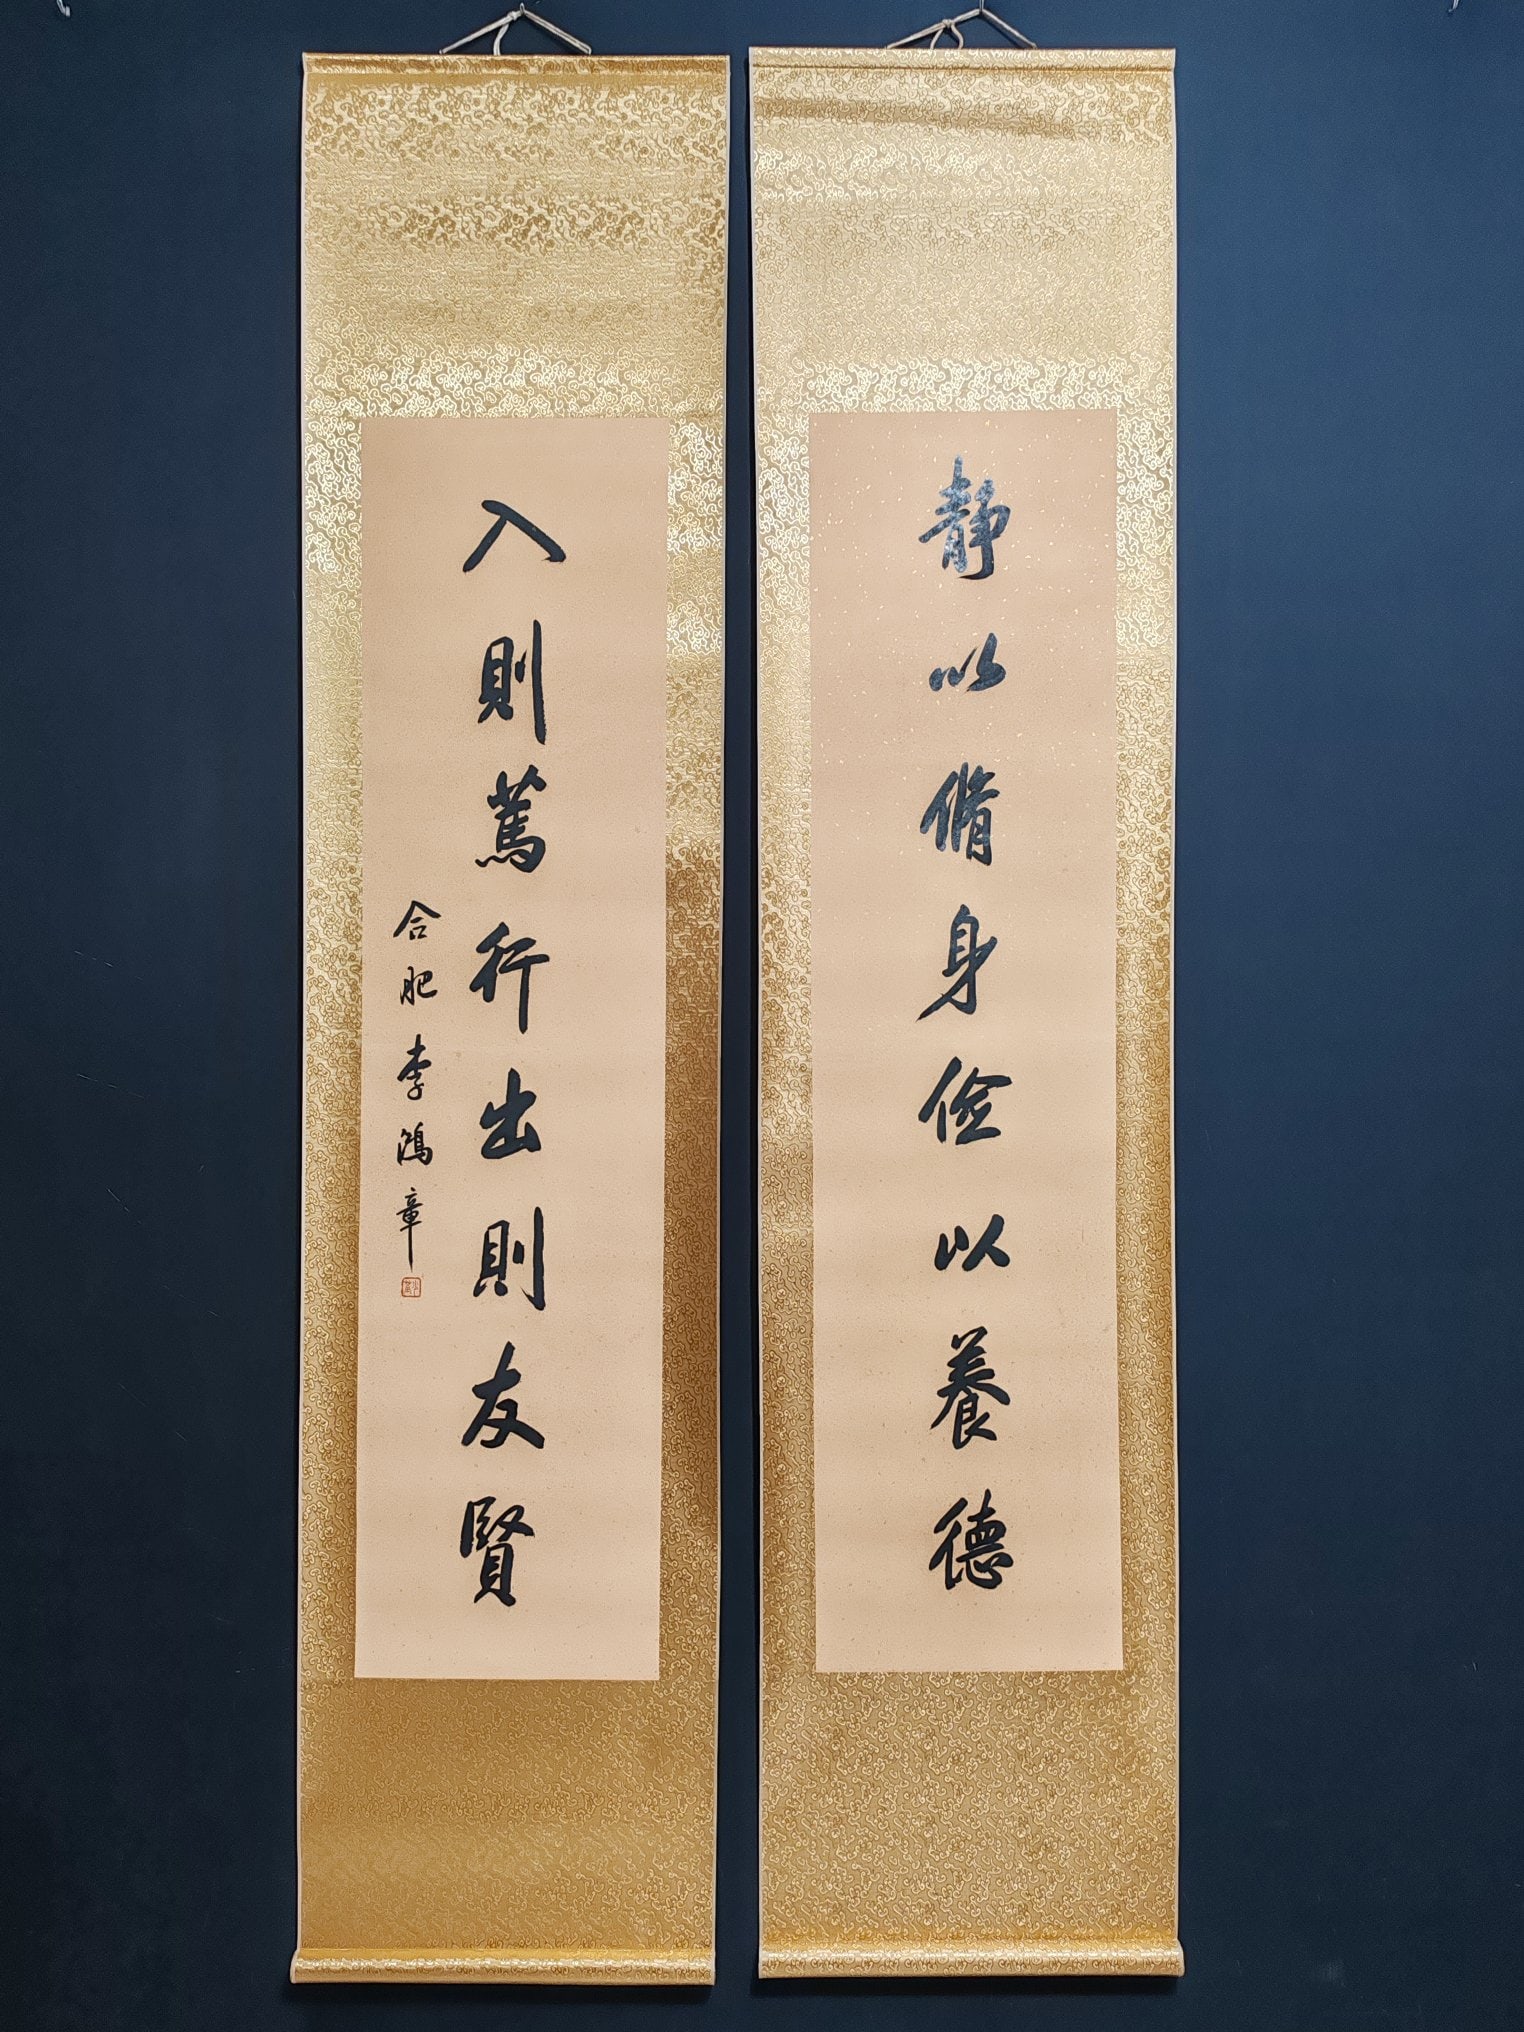 靜以脩身儉以養德
入則篤行出則友賢
合肥李鴻章